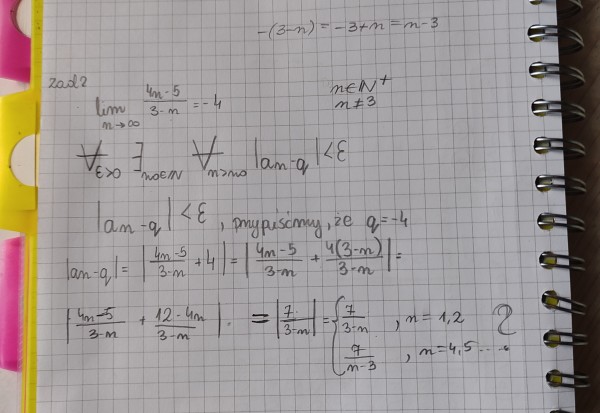 -(3-n) = -3+n = n-3
zad2
lim n→∞ (4n-5)/(3-n) = -4
n∈ℕ⁺
n≠3
∀ε>0 ∃n₀∈ℕ ∀n>n₀ |an-q| < ε
|an-q| < ε, przypuśćmy, że q=-4
|an-q| = |(4n-5)/(3-n) + 4| = |(4n-5)/(3-n) + 4(3-n)/(3-n)| =
|(4n-5)/(3-n) + (12-4n)/(3-n)|. = |7/(3-n)| = { 7/(3-n), n=1,2
7/(n-3), n=4,5....